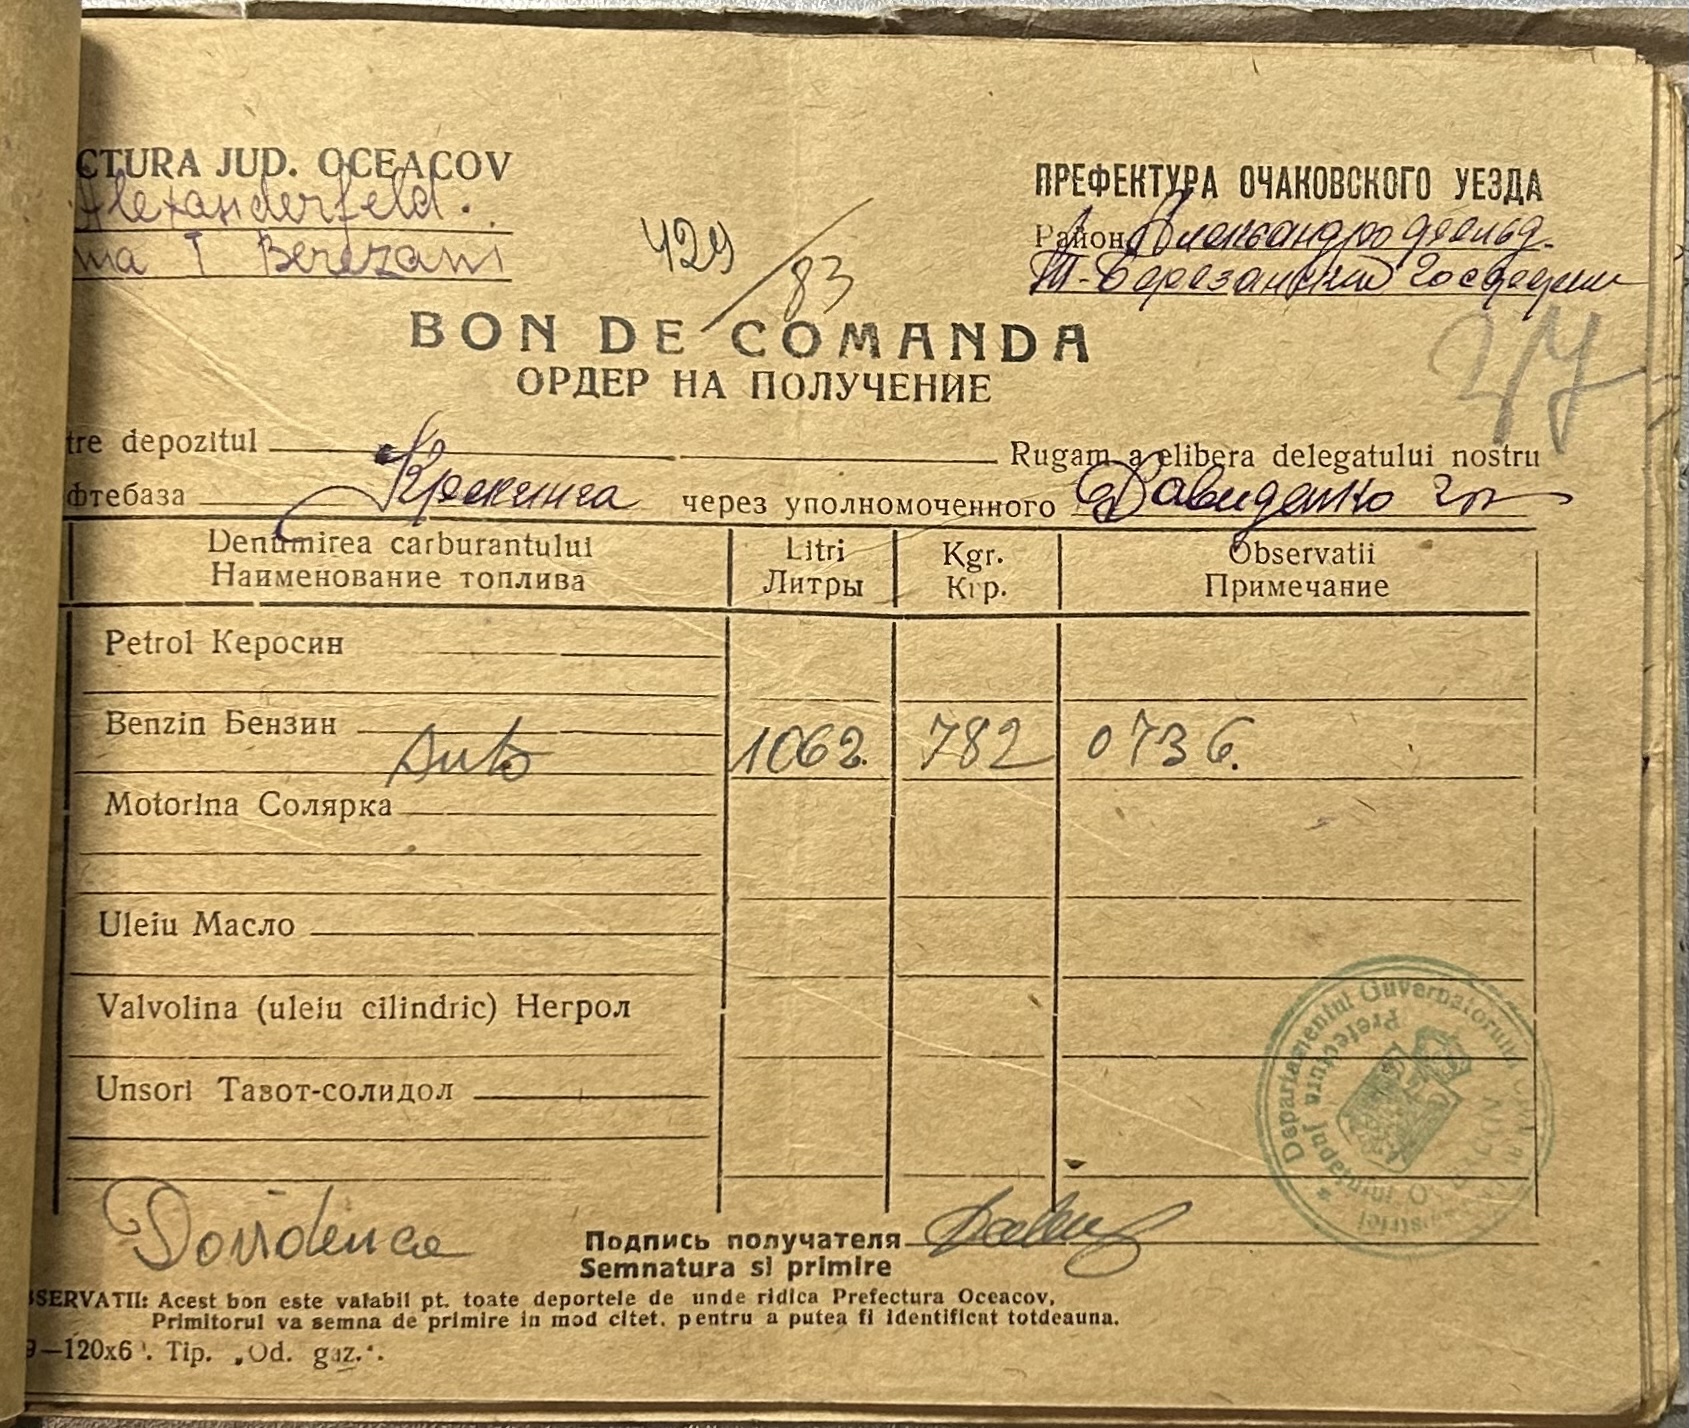 CTURA JUD. OCEACOV
Alexanderfeld.
ma T Berezani
429/83
ПРЕФЕКТУРА ОЧАКОВСКОГО УЕЗДА
Район Александрофельд.
Т-Березанский
BON DE COMANDA
ОРДЕР НА ПОЛУЧЕНИЕ
tre depozitul Rugam a elibera delegatului nostru
фтебаза Крекинга через уполномоченного Давиденко
Denumirea carburantului Litri Kgr. Observatii
Наименование топлива Литры Кгр. Примечание
Petrol Керосин
Benzin Бензин
Auto 1062. 782 0736.
Motorina Солярка
Uleiu Масло
Valvolina (uleiu cilindric) Негрол
Unsori Тавот-солидол
Departamentul Guvernatorului
Prefectura Județului
Подпись получателя
Semnatura si primire
SERVATII: Acest bon este valabil pt. toate deportele de unde ridica Prefectura Oceacov,
Primitorul va semna de primire in mod citet. pentru a putea fi identificat totdeauna.
9—120x6 . Tip. „Od. gaz.".